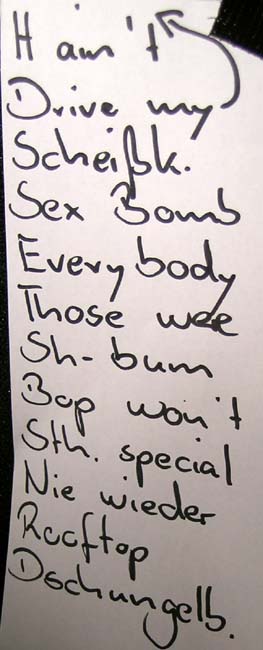 H ain't
Drive my
Scheißk.
Sex Bomb
Everybody
Those wee
Sh-bum
Bop won't
Sth. special
Nie wieder
Rooftop
Dschungelb.